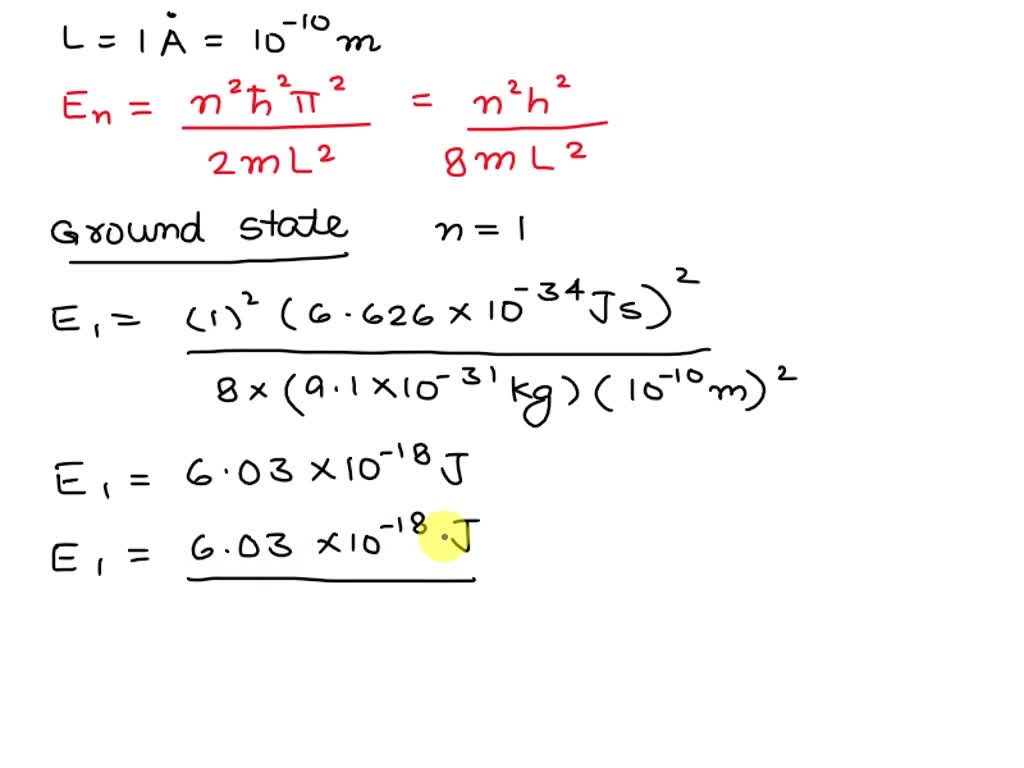 L = 1 Å = 10⁻¹⁰ m
Eₙ = n²ħ²π² / 2mL² = n²h² / 8mL²
Ground state n = 1
E₁ = (1)² (6.626 × 10⁻³⁴ Js)² / 8 × (9.1 × 10⁻³¹ kg) (10⁻¹⁰ m)²
E₁ = 6.03 × 10⁻¹⁸ J
E₁ = 6.03 × 10⁻¹⁸ J